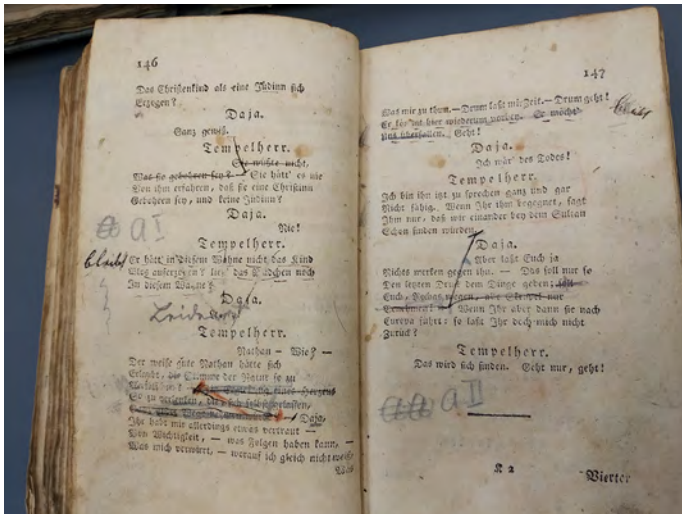 146
Das Christenkind als eine Jüdinn sich
Erzogen?
Daja.
Ganz gewiß.
Tempelherr.
Sie wüßte nicht,
Was sie gebohren sey? — Sie hätt' es nie
Von ihm erfahren, daß sie eine Christinn
Gebohren sey, und keine Jüdinn?
Daja.
Nie!
a I
Tempelherr.
bleibt
Er hätt' in diesem Wahne nicht das Kind
Blos auferzogen? ließ das Mädchen noch
In diesem Wahne?
Daja.
Leider!
Tempelherr.
Nathan — Wie? —
Der weise gute Nathan hätte sich
Erlaubt, die Stimme der Natur so zu
Verfälschen? Die Ergießung eines Herzens
So zu verlenken, die, sich selbst gelassen,
Daja,
Ihr habt mir allerdings etwas vertraut —
Von Wichtigkeit, — was Folgen haben kann, —
Was mich verwirrt, — worauf ich gleich nicht weiß,
Was
147
Was mir zu thun. — Drum laßt mir Zeit. — Drum geht!
bleibt
Er kömmt hier wiederum vorbey. Er möcht'
Uns überfallen. Geht!
Daja.
Ich wär' des Todes!
Tempelherr.
Ich bin ihn itzt zu sprechen ganz und gar
Nicht fähig. Wenn Ihr ihm begegnet, sagt
Ihm nur, daß wir einander bey dem Sultan
Schon finden würden.
Daja.
Aber laßt Euch ja
Nichts merken gegen ihn. — Das soll nur so
Den letzten Druck dem Dinge geben; soll
Euch, Rechas wegen, alle Skrupel nur
Benehmen! — Wenn Ihr aber dann sie nach
Europa führt: so laßt Ihr doch mich nicht
Zurück?
Tempelherr.
Das wird sich finden. Geht nur, geht!
a II
K 2
Vierter